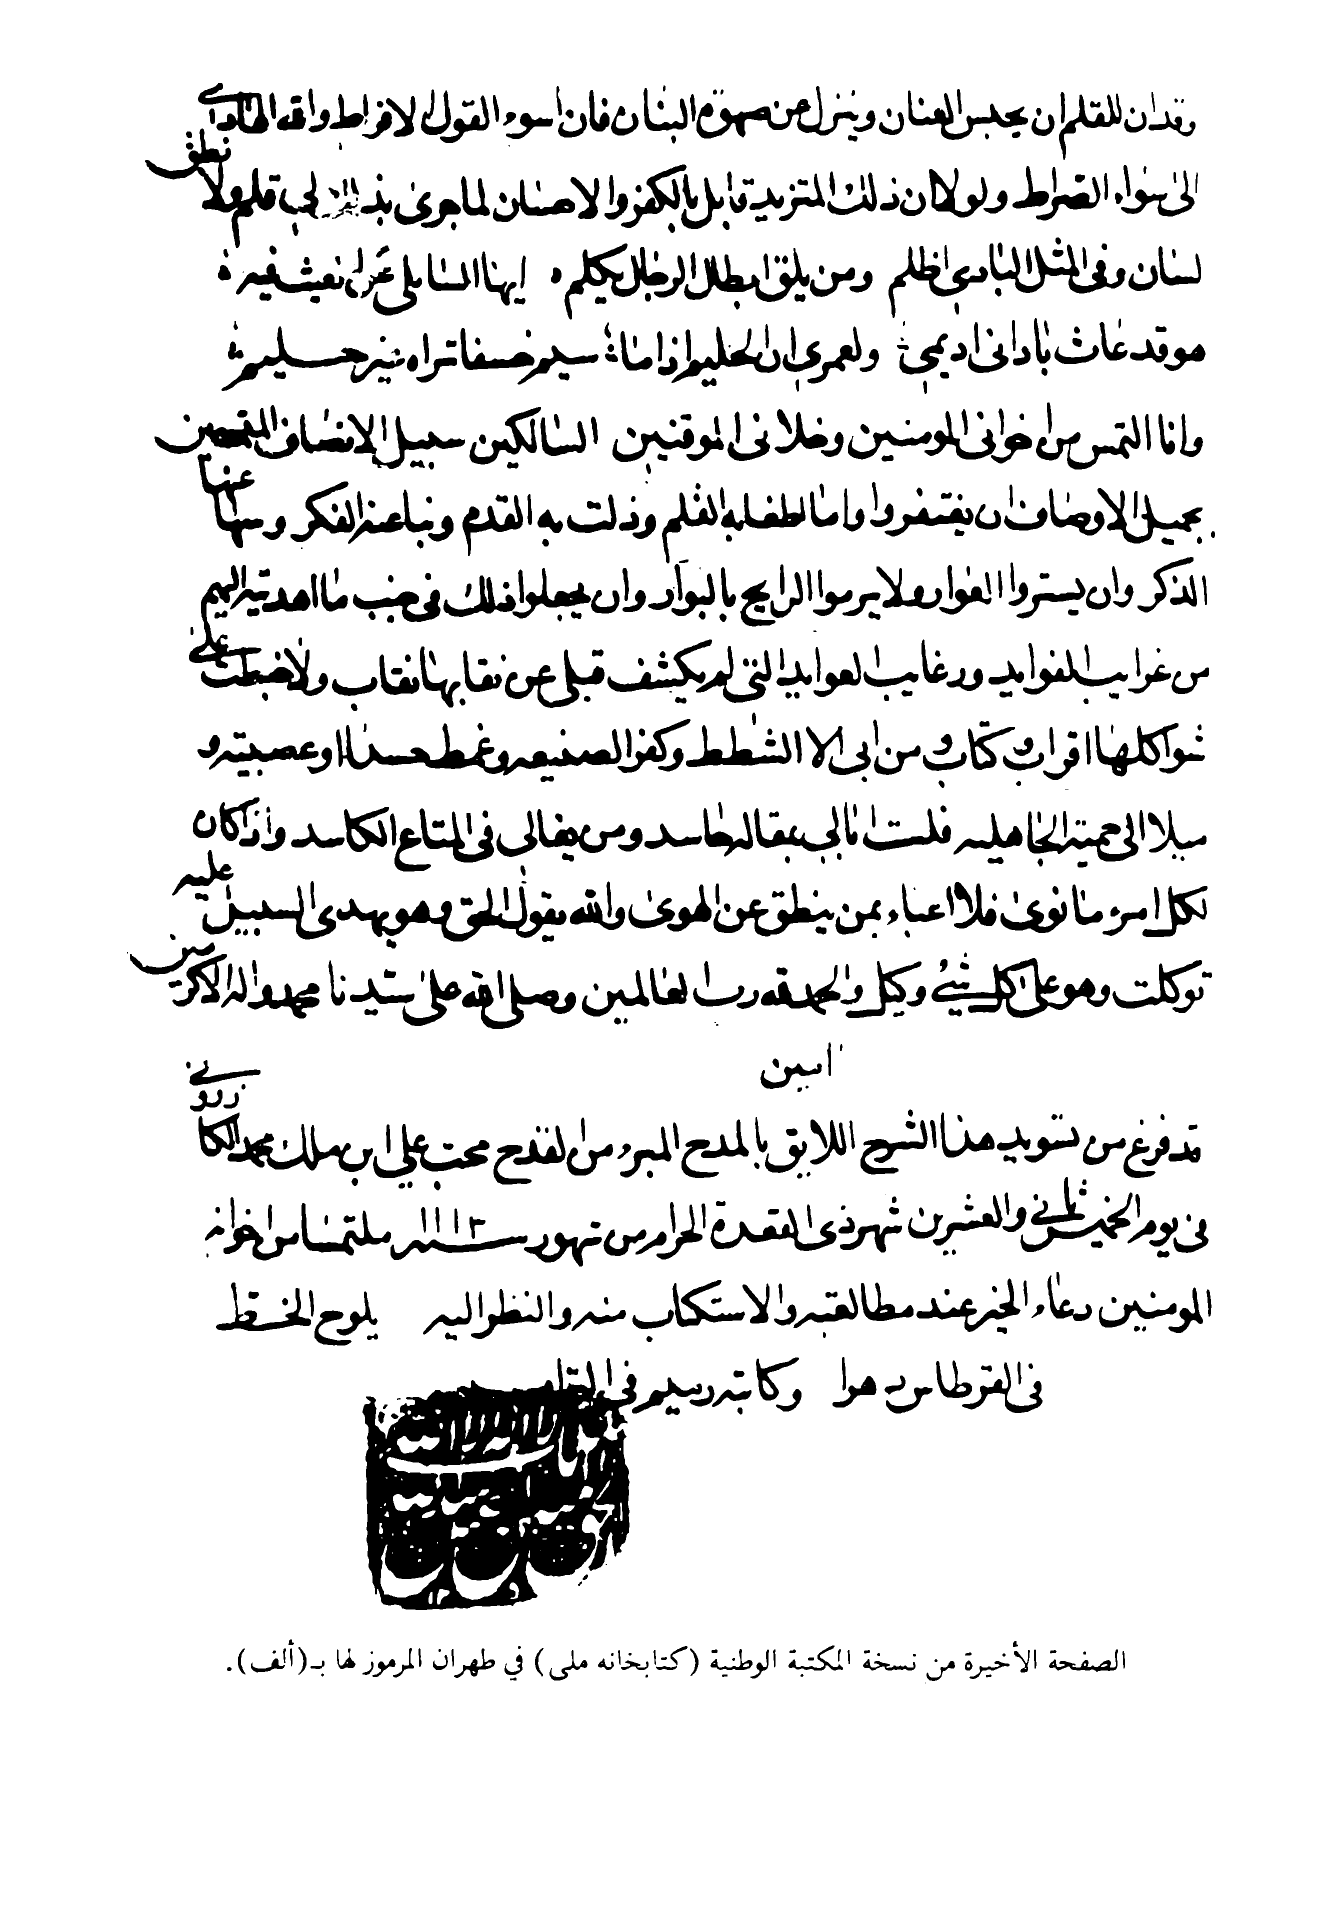 وقد ان للقلم ان يحبس العنان وينزل عن صهوة البنان فان اسوء القول الافراط والله الهادي
الى سواء الصراط ولولا ان ذلك المتزيد قابل بالكفر والاحسان لما جرى بذلك لي قلم ولا نطق
لسان وفي المثل البادي اظلم ومن يلق ابطال الرجال يكلم ايها السايلي عن
هو قد عاث باداني اديمي ولعمري ان الحليم اذا ما سيم خسفا تراه غير حليم
وانا التمس من اخواني المومنين وخلاني الموقنين السالكين سبيل الانصاف المتصفين
بجميل الاوصاف ان يغتفروا واما طغا به القلم وزلت به القدم ونبا عنه الفكر وسها عنها
الذكر وان يستروا العوار ولا يرموا الرايج بالبوار وان يجعلوا ذلك في جنب ما اهديته اليهم
من غرايب الفوايد ورغايب العوايد التي لم يكشف قبلي عن نقابها نقاب ولا ضبطت على
شواكلها اقراب كتاب ومن ابى الا الشطط وكفر الصنيعه وغمط حسدا او عصبية و
ميلا الى حمية الجاهليه فلست ابالي بمقاله حاسد ومن يغالي في المتاع الكاسد واذا كان
لكل امرء ما نوى فلا اعباء بمن ينطق عن الهوى والله يقول الحق وهو يهدي السبيل عليه
توكلت وهو على كل شيء وكيل والحمد لله رب العالمين وصلى الله على سيدنا محمد واله الاكرمين
امين
قد فرغ من تسويد هذا الشرح اللايق بالمدح المبرء من القدح محب علي ابن ملك محمد الكازروني
في يوم الخميس ثاني والعشرين شهر ذي القعدة الحرام من شهور سنه ١١١٢ ملتمسا من اخوانه
المومنين دعاء الخير عند مطالعته والاستكتاب منه والنظر اليه يلوح الخط
في القرطاس دهرا وكاتبه رميم في التراب
الصفحة الأخيرة من نسخة المكتبة الوطنية (كتابخانه ملى) في طهران المرموز لها بـ(ألف).